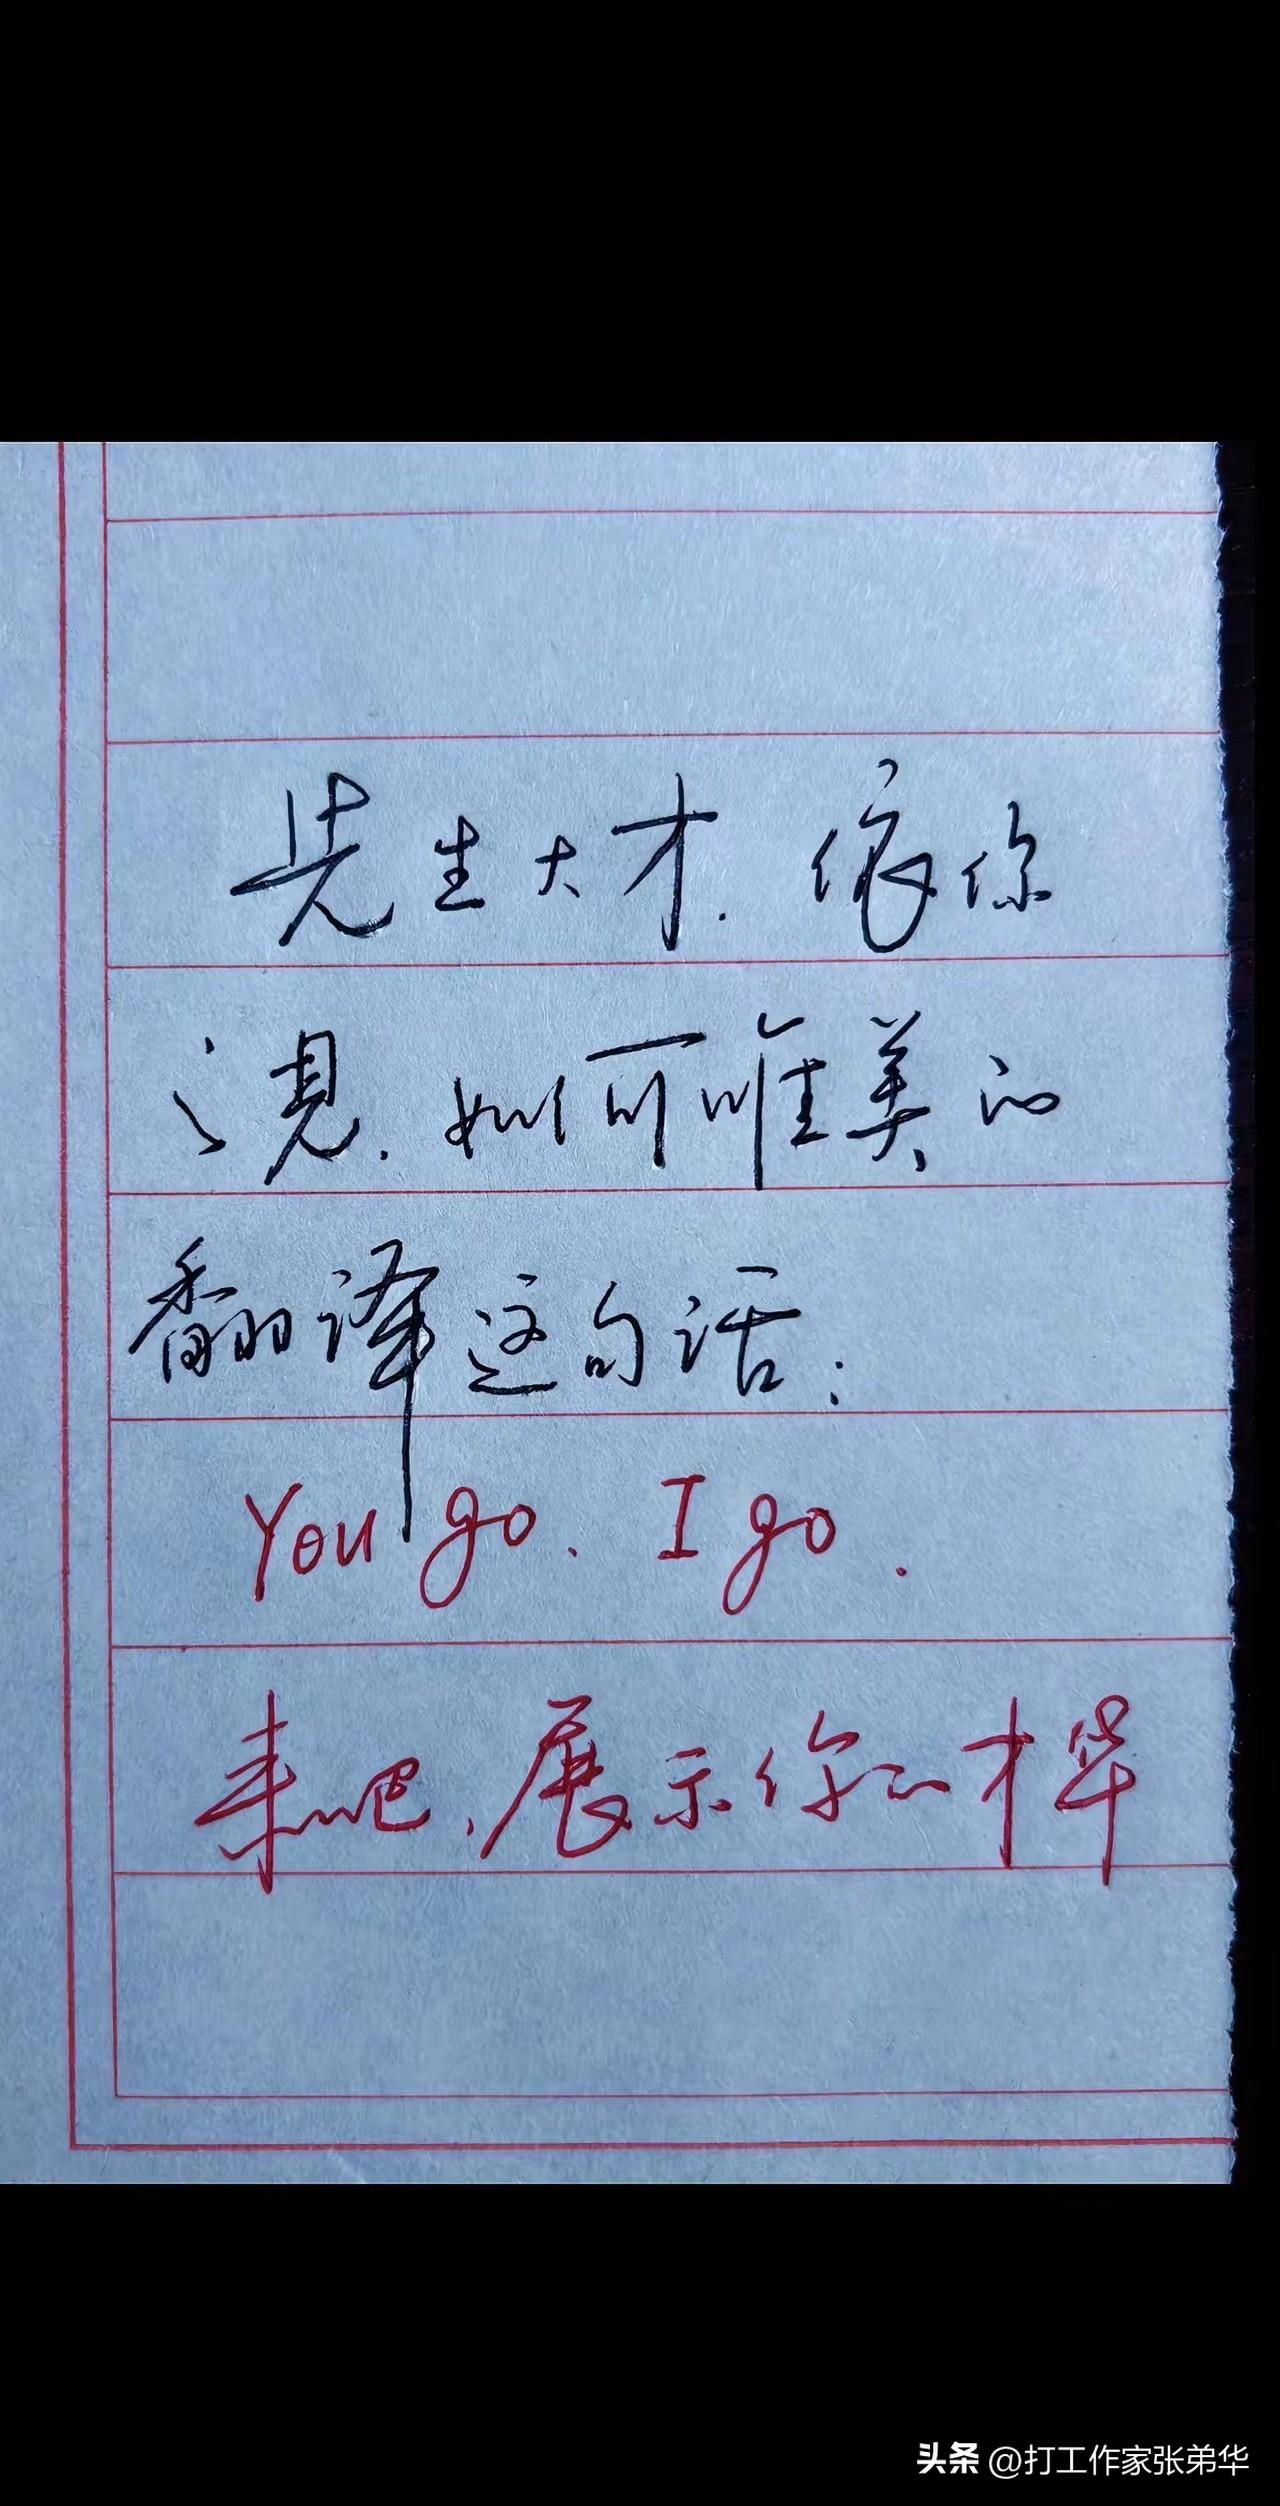 先生大才.依你
之見.如何唯美的
翻译这句话:
You go. I go.
来吧,展示你的才华
头条 @打工作家张弟华